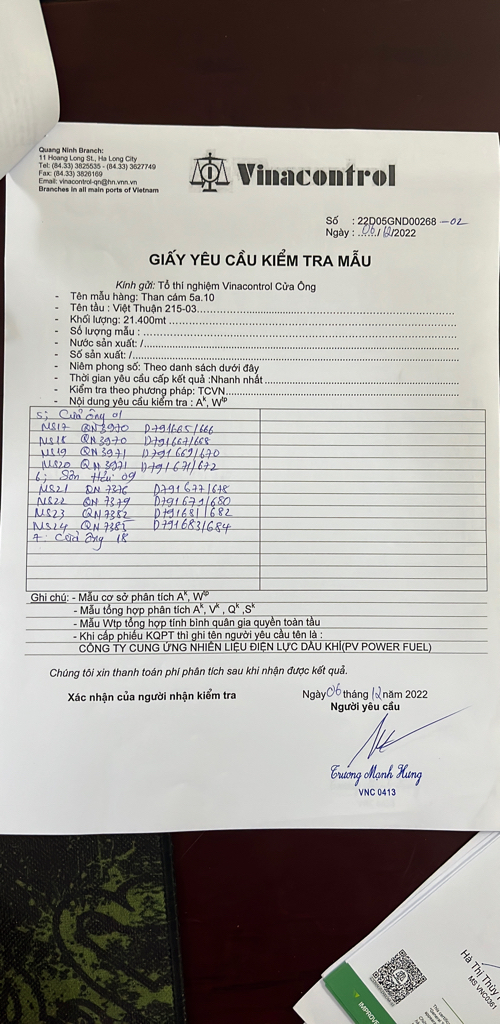 Quang Ninh Branch:
11 Hoang Long St., Ha Long City
Tel: (84.33) 3825535 - (84.33) 3627749
Fax: (84.33) 3826169
Email: vinacontrol-qn@hn.vnn.vn
Branches in all main ports of Vietnam
Vinacontrol
Số : 22D05GND00268 -02
Ngày : ..06./12/2022
GIẤY YÊU CẦU KIỂM TRA MẪU
Kính gửi: Tổ thí nghiệm Vinacontrol Cửa Ông
- Tên mẫu hàng: Than cám 5a.10
- Tên tàu : Việt Thuận 215-03
- Khối lượng: 21.400mt
- Số lượng mẫu :
- Nước sản xuất: /
- Số sản xuất: /
- Niêm phong số: Theo danh sách dưới đây
- Thời gian yêu cầu cấp kết quả :Nhanh nhất
- Kiểm tra theo phương pháp: TCVN
- Nội dung yêu cầu kiểm tra : Aᵏ, Wᵗᵖ
5; Cửa Ông 01
NS17 QN 3970 D791665/666
NS18 QN 3970 D791667/668
NS19 QN 3971 D791669/670
NS20 QN 3971 D791671/672
6; Sơn Hải 09
NS21 QN 7376 D791677/678
NS22 QN 7379 D791679/680
NS23 QN 7382 D791681/682
NS24 QN 7385 D791683/684
7. Cửa Ông 18
Ghi chú: - Mẫu cơ sở phân tích Aᵏ, Wᵗᵖ
- Mẫu tổng hợp phân tích Aᵏ, Vᵏ , Qᵏ ,Sᵏ
- Mẫu Wtp tổng hợp tính bình quân gia quyền toàn tầu
- Khi cấp phiếu KQPT thì ghi tên người yêu cầu tên là :
CÔNG TY CUNG ỨNG NHIÊN LIỆU ĐIỆN LỰC DẦU KHÍ(PV POWER FUEL)
Chúng tôi xin thanh toán phí phân tích sau khi nhận được kết quả.
Xác nhận của người nhận kiểm tra
Ngày 06 tháng 12 năm 2022
Người yêu cầu
Trương Mạnh Hưng
VNC 0413
Hà Thị Thủy
MS VNC0361